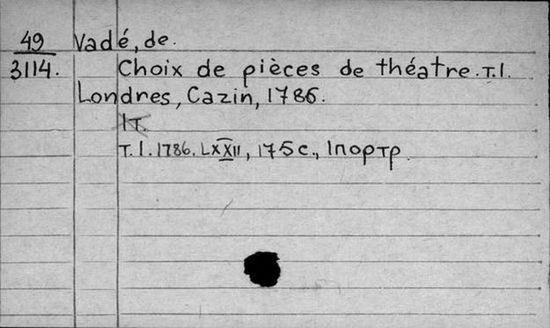 49 Vadé, de.
3114. Choix de pièces de théatre. т.I.
Londres, Cazin, 1786.
1т.
т.I. 1786. LXXII, 175 с., 1 портр.